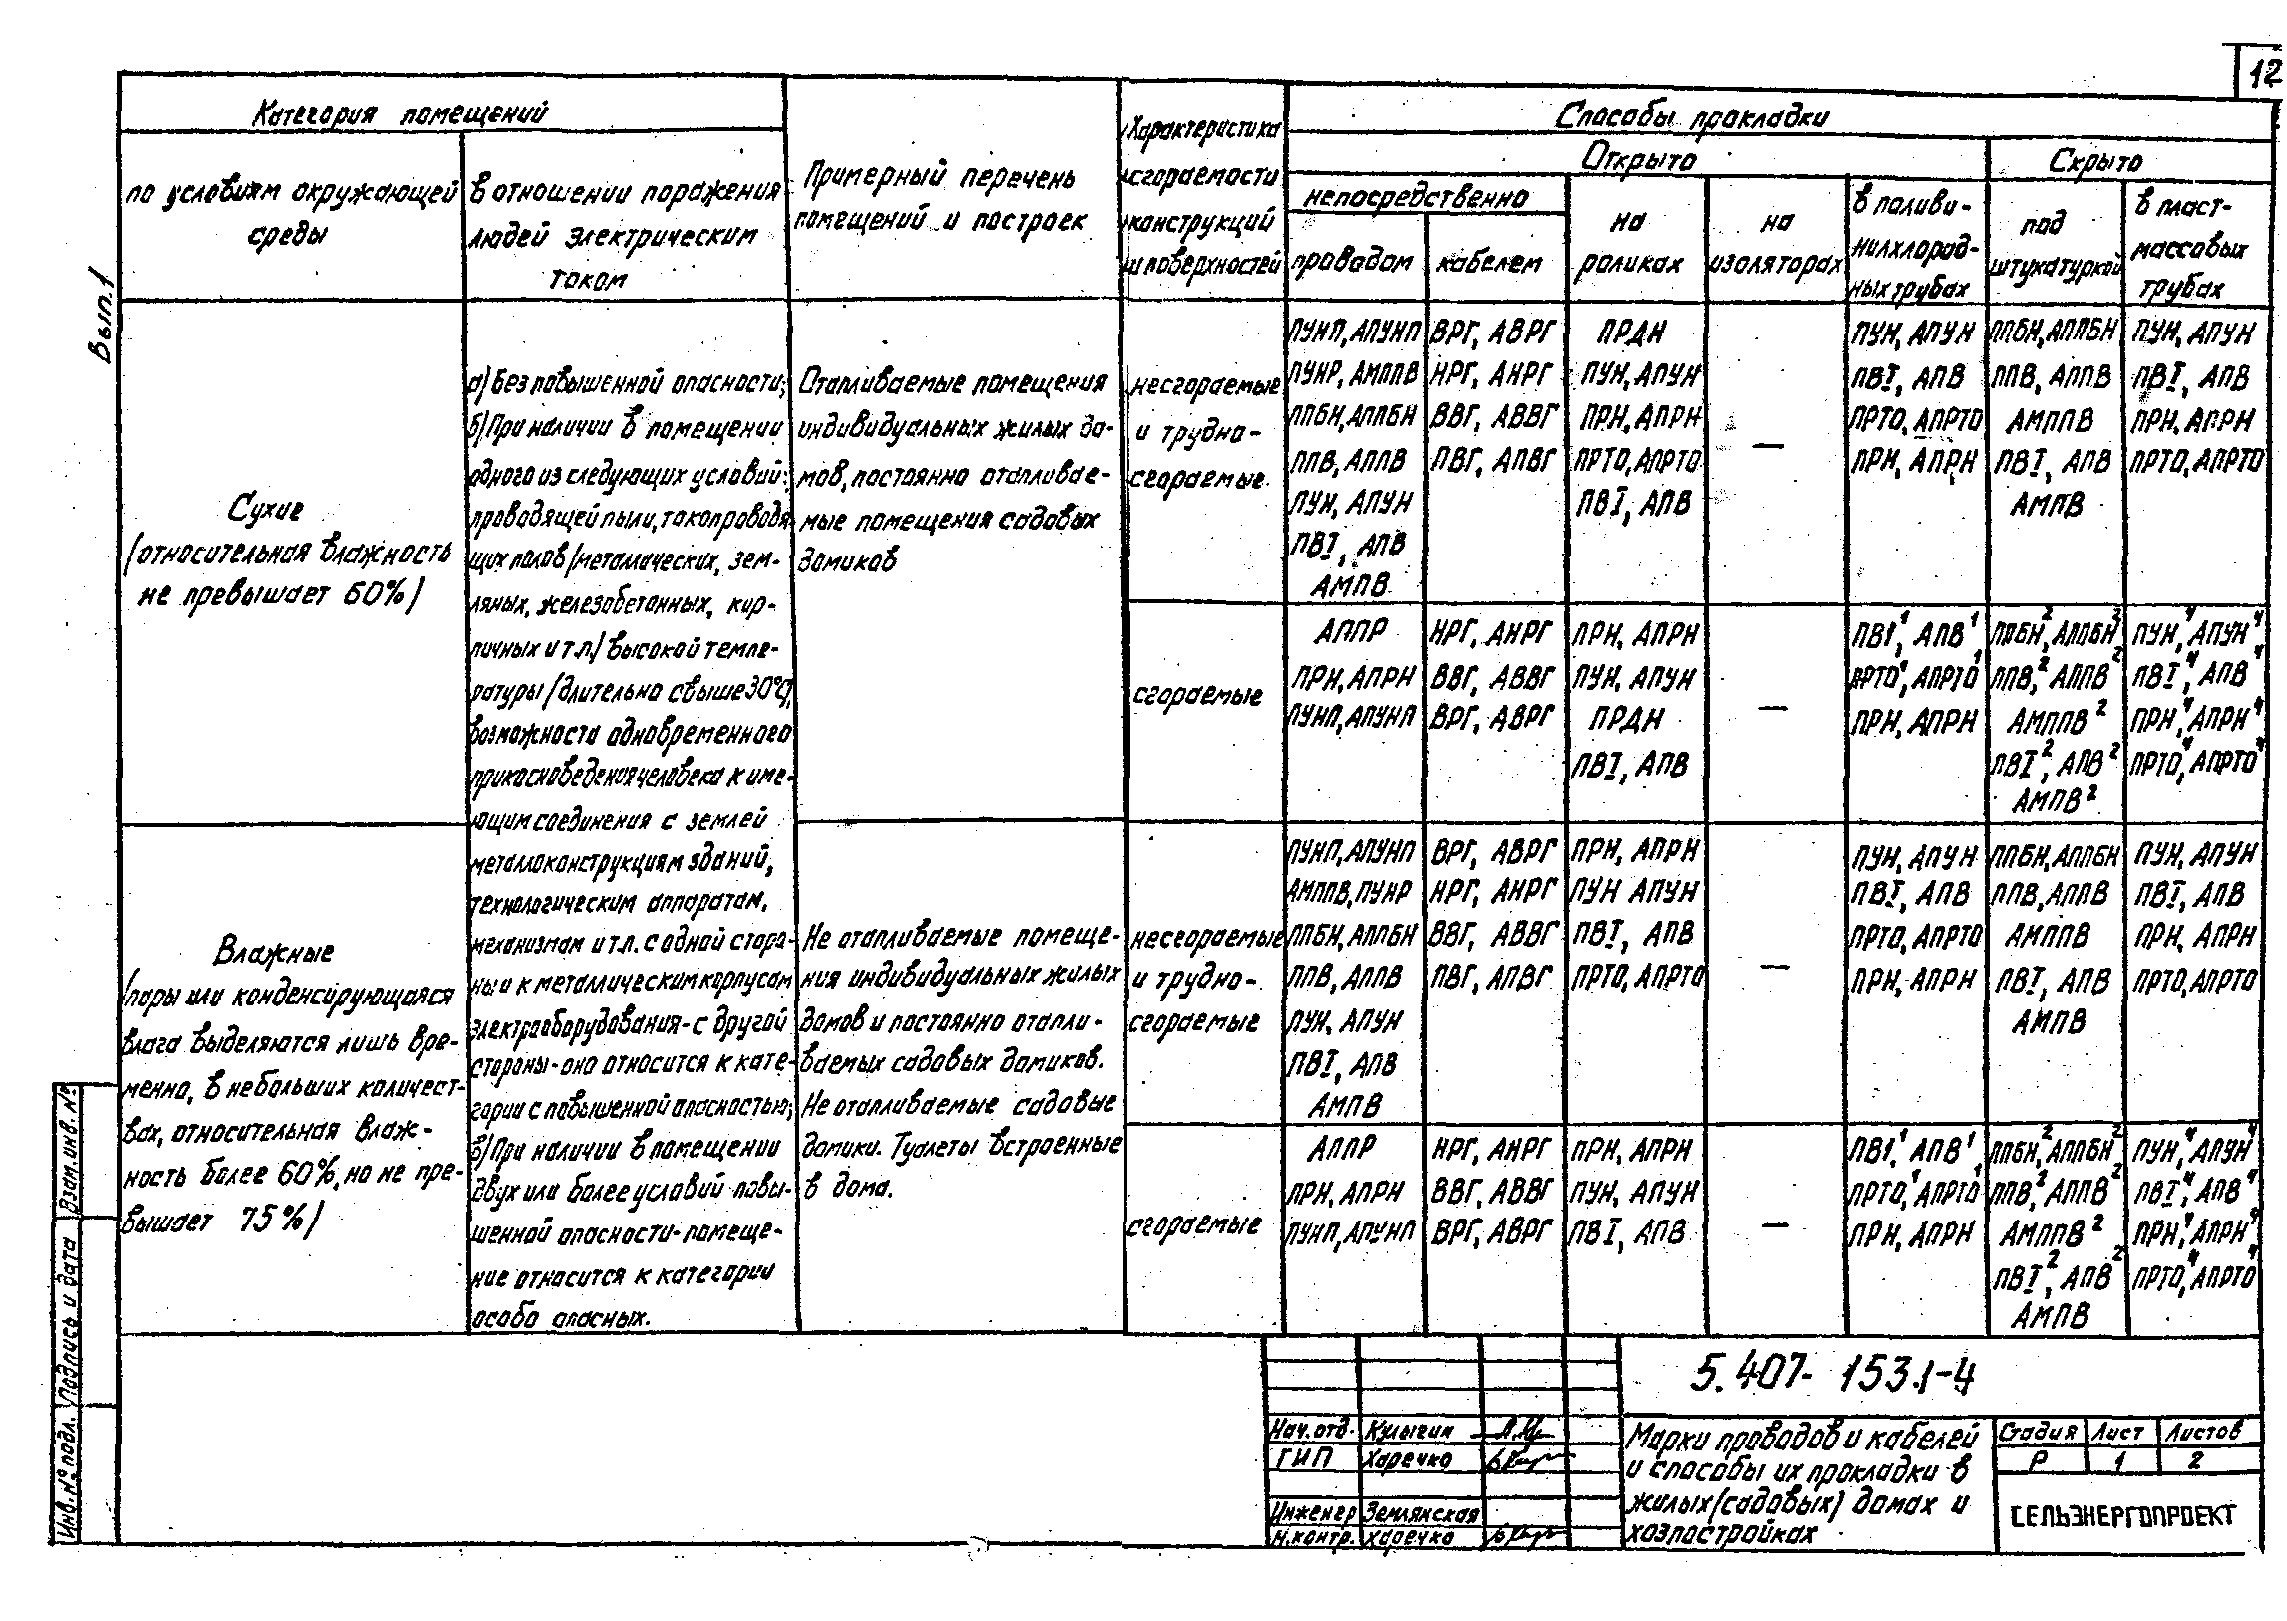 12
Вып.1
Категория помещений
по условиям окружающей
среды
в отношении поражения
людей электрическим
током
Примерный перечень
помещений и построек
Характеристика
сгораемости
конструкций
и поверхностей
Способы прокладки
Открыто
Скрыто
непосредственно
проводом
кабелем
на
роликах
на
изоляторах
в поливи-
нилхлорид-
ных трубах
под
штукатуркой
в пласт-
массовых
трубах
Сухие
(относительная влажность
не превышает 60%)
а) Без повышенной опасности;
б) При наличии в помещении
одного из следующих условий:
проводящей пыли, токопроводя
щих полов (металлических, зем-
ляных, железобетонных, кир-
пичных и т.п.) высокой темпе-
ратуры (длительно свыше 30°С),
возможности одновременного
прикосновения человека к име-
ющим соединения с землей
металлоконструкциям зданий,
технологическим аппаратам,
механизмам и т.п. с одной сторо-
ны и к металлическим корпусам
электрооборудования - с другой
стороны - оно относится к кате-
гории с повышенной опасностью;
в) При наличии в помещении
двух или более условий повы-
шенной опасности - помеще-
ние относится к категории
особо опасных.
Отапливаемые помещения
индивидуальных жилых до-
мов, постоянно отапливае-
мые помещения садовых
домиков
несгораемые
и трудно-
сгораемые
ПУНП, АПУНП
ПУНР, АМППВ
ППБН, АППБН
ППВ, АППВ
ПУН, АПУН
ПВ1, АПВ
АМПВ
ВРГ, АВРГ
НРГ, АНРГ
ВВГ, АВВГ
ПВГ, АПВГ
ПРДН
ПУН, АПУН
ПРН, АПРН
ПРТО, АПРТО
ПВ1, АПВ
—
ПУН, АПУН
ПВ1, АПВ
ПРТО, АПРТО
ПРН, АПРН
ППБН, АППБН
ППВ, АППВ
АМППВ
ПВ1, АПВ
АМПВ
ПУН, АПУН
ПВ1, АПВ
ПРН, АПРН
ПРТО, АПРТО
сгораемые
АППР
ПРН, АПРН
ПУНП, АПУНП
НРГ, АНРГ
ВВГ, АВВГ
ВРГ, АВРГ
ПРН, АПРН
ПУН, АПУН
ПРДН
ПВ1, АПВ
—
ПВ1¹, АПВ¹
ПРТО¹, АПРТО¹
ПРН, АПРН
ППБН², АППБН²
ППВ², АППВ²
АМППВ²
ПВ1², АПВ²
АМПВ²
ПУН⁴, АПУН⁴
ПВ1⁴, АПВ⁴
ПРН⁴, АПРН⁴
ПРТО⁴, АПРТО⁴
Влажные
(пары или конденсирующаяся
влага выделяются лишь вре-
менно, в небольших количест-
вах, относительная влаж-
ность более 60%, но не пре-
вышает 75%)
Не отапливаемые помеще-
ния индивидуальных жилых
домов и постоянно отапли-
ваемых садовых домиков.
Не отапливаемые садовые
домики. Туалеты встроенные
в дома.
несгораемые
и трудно-
сгораемые
ПУНП, АПУНП
АМППВ, ПУНР
ППБН, АППБН
ППВ, АППВ
ПУН, АПУН
ПВ1, АПВ
АМПВ
ВРГ, АВРГ
НРГ, АНРГ
ВВГ, АВВГ
ПВГ, АПВГ
ПРН, АПРН
ПУН АПУН
ПВ1, АПВ
ПРТО, АПРТО
—
ПУН, АПУН
ПВ1, АПВ
ПРТО, АПРТО
ПРН, АПРН
ППБН, АППБН
ППВ, АППВ
АМППВ
ПВ1, АПВ
АМПВ
ПУН, АПУН
ПВ1, АПВ
ПРН, АПРН
ПРТО, АПРТО
сгораемые
АППР
ПРН, АПРН
ПУНП, АПУНП
НРГ, АНРГ
ВВГ, АВВГ
ВРГ, АВРГ
ПРН, АПРН
ПУН, АПУН
ПВ1, АПВ
—
ПВ1¹, АПВ¹
ПРТО¹, АПРТО¹
ПРН, АПРН
ППБН², АППБН²
ППВ², АППВ²
АМППВ²
ПВ1², АПВ²
АМПВ
ПУН⁴, АПУН⁴
ПВ1⁴, АПВ⁴
ПРН⁴, АПРН⁴
ПРТО⁴, АПРТО⁴
Инв. № подл.
Подпись и дата
Взам. инв. №
5.407-153.1-4
Нач. отд. Кулыгин
ГИП Харечко
Инженер Землянская
Н.контр. Харечко
Марки проводов и кабелей
и способы их прокладки в
жилых (садовых) домах и
хозпостройках
Стадия Лист Листов
Р 1 2
СЕЛЬЭНЕРГОПРОЕКТ